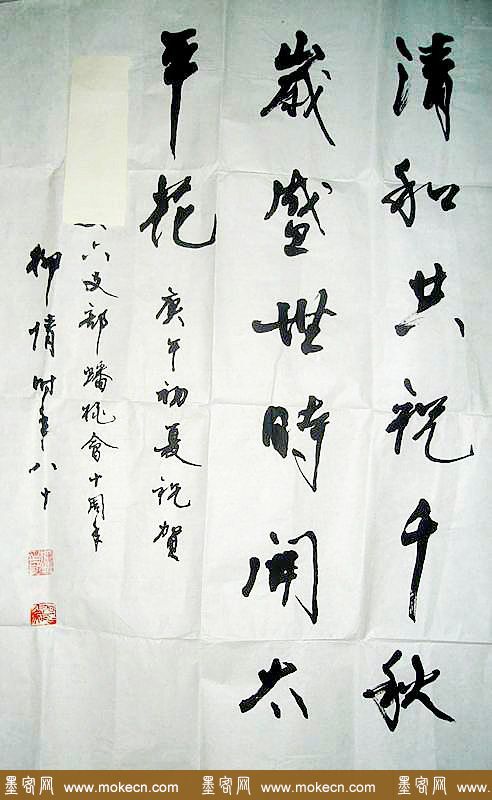 清和共祝千秋
歲盛世時開太
平花
庚午初夏祝賀
六支部蟠桃會十周年
柳倩時年八十
墨客网 www.mokecn.com 墨客网 www.mokecn.com 墨客网